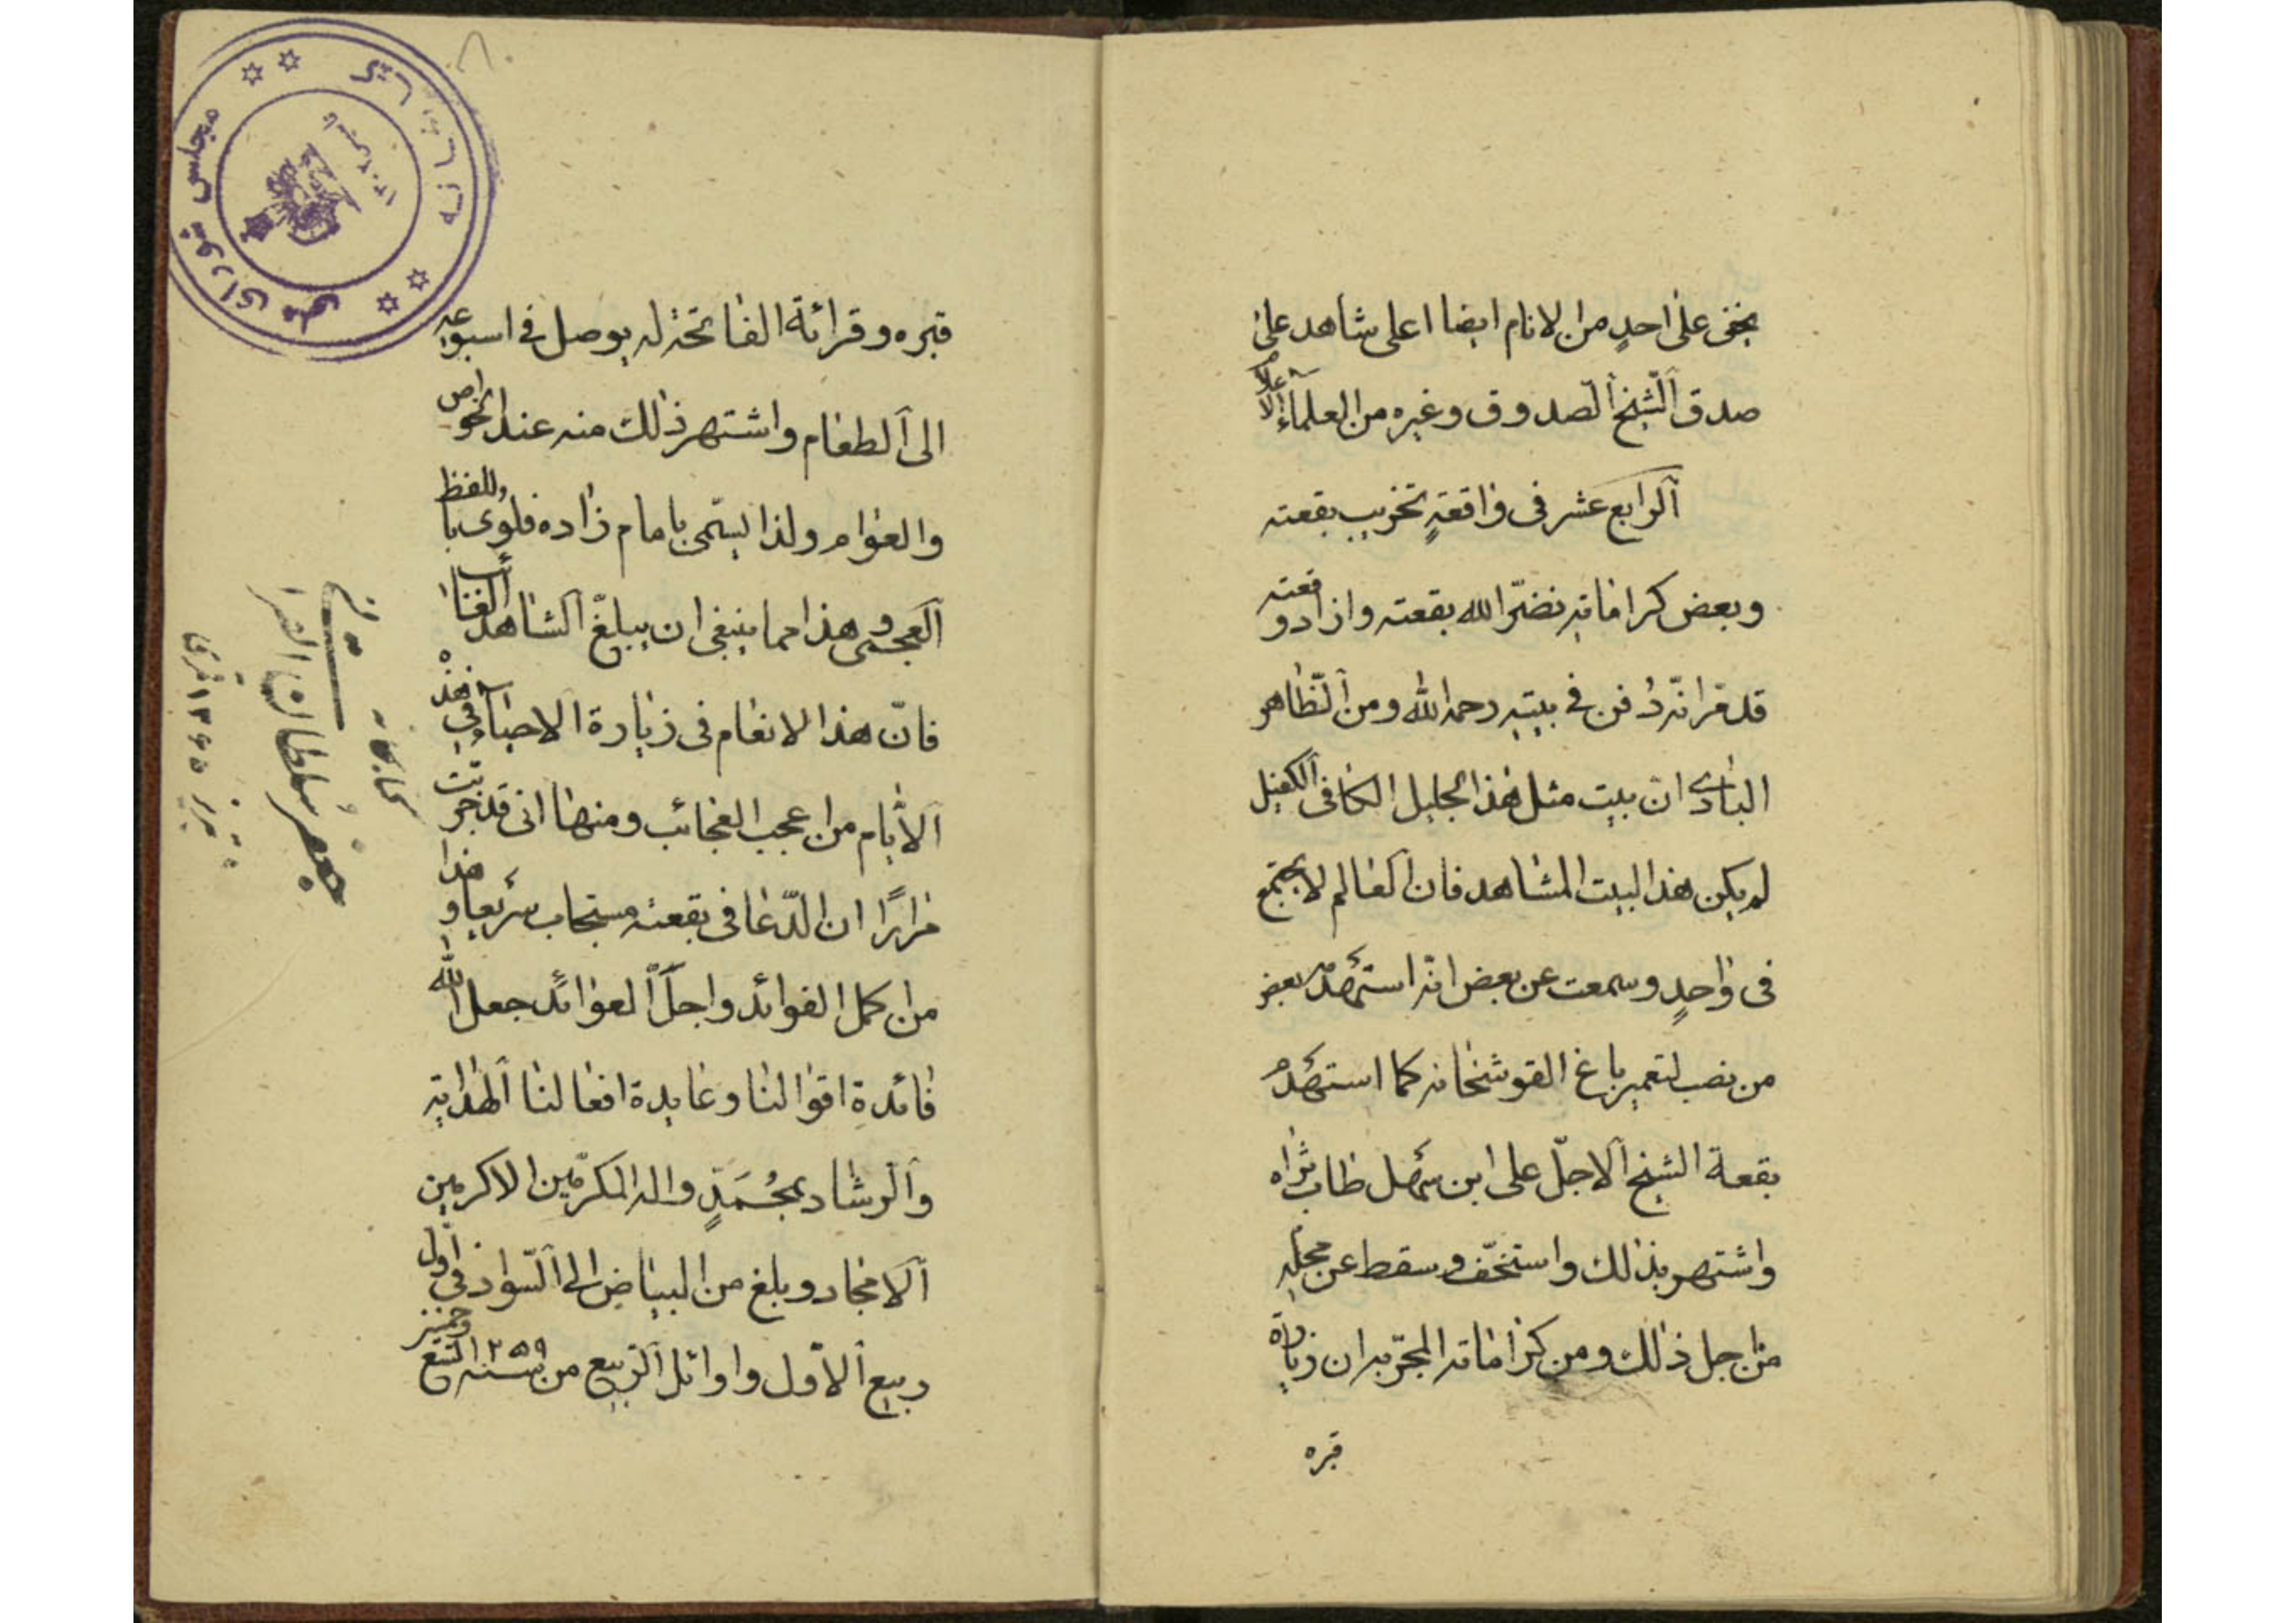 يخفى على احدٍ من الانام ايضا اعلى شاهد على
صدق الشيخ الصدوق وغيره من العلماء الاعلام
الرابع عشر في واقعةِ تخريب بقعته
وبعض كراماته نضّر الله بقعته وازاد رفعته
قد مّر انّه دُفن في بيته رحمه الله ومن الظّاهر
البادى ان بيت مثل هذا الجليل الكافى الكفيل
لم يكن هذا البيت المشاهد فان العالم لا يجتمع
فى واحدٍ وسمعت عن بعض انّه استهدم بعض
من نصب لتعمير باغ القوشخانه كما استهدم
بقعة الشيخ الاجلّ على ابن سهل طاب ثراه
واشتهر بذلك واستخفّ وسقط عن محلّه
من اجل ذلك ومن كراماته المجرّبه ان زيارة
قبره
قبره وقرائة الفاتحة له يوصل في اسبوعه
الى الطعام واشتهر ذلك منه عند الخواص
والعوام ولذا يسمّى بامام زاده فلوى باللفظ
العجمى وهذا مما ينبغى ان يبلغّ الشاهد الغائب
فانّ هذا الانعام فى زيارة الاحباء في هذه
الأيام من اعجب العجائب ومنها انى قد جربت
مرارًا ان الدّعا فى بقعته مستجاب سريعا وهذا
من اكمل الفوائد واجلّ العوائد جعل الله
فائدة اقوالنا وعايدة افعالنا الهداية
والرشاد بمحُمَدٍ واله المكرّمين الاكرمين
الامجاد وبلغ من البياض الى السّواد في اول
ربيع الأول واوائل الربيع من سنه ١٢٥٩ التسع وخمسين
كتابخانه
مجلس شورای ملی
جعفر سلطان القرا
تبريز ١٣٦٥ قمرى